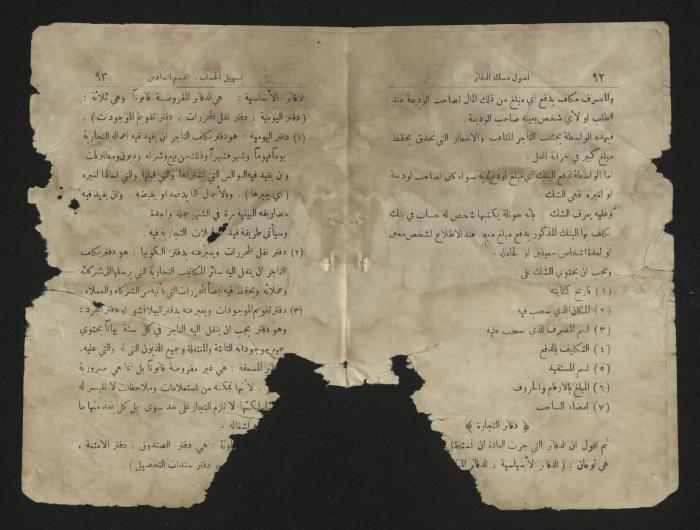 ٩٢ اصول مسك الدفاتر
والمصرف مكلف بدفع اي مبلغ من ذلك المال لصاحب الوديعة عند
الطلب او لأي شخص يعينه صاحب الوديعة .
فبهذه الواسطة يجتنب التاجر المتاعب والاخطار التي تحدق بحفظ
مبلغ كبير في خزانة المحل .
اما الواسطة لدفع البنك اي مبلغ اودع لديه سواء كان لصاحب الوديعة
او لغيره فهي الشك .
وعليه يعرف الشك : بانه حوالة يكتبها شخص له حساب في بنك
يكلف بها البنك المذكور بدفع مبلغ معين عند الاطلاع لشخص معين
او لعدة اشخاص معينين او لحامله .
ويجب ان يحتوي الشك على
(١) تاريخ كتابته
(٢) المكان الذي سحب فيه
(٣) اسم المصرف الذي سحب عليه
(٤) التكليف بالدفع
(٥) اسم المستفيد
(٦) المبلغ بالارقام والحروف
(٧) امضاء الساحب
﴿ دفاتر التجارة ﴾
ثم اقول ان الدفاتر التي جرت العادة ان تستعمل
هي نوعان : ( الدفاتر الأساسية ، الدفاتر
٩٣ تسهيل الحساب ، القسم السادس
الدفاتر الأساسية : هي الدفاتر المفروضة قانوناً وهي ثلاثة :
( دفتر اليومية ، دفتر نقل المحررات ، دفتر تقويم الموجودات ) .
(١) دفتر اليومية : هو دفتر يكلف التاجر ان يقيد فيه اعماله التجارية
يوماً فيوماً وشهراً فشهراً وذلك من بيع وشراء وديون ومطلوبات
وان يقيد فيه البوالس التي اشتراها والتي قبلها والتي احالها لغيره
( اي جيرها ) . وبالأجمال كلما يدفعه او يقبضه . وان يقيد فيه
مصاريفه البيتية مرة في الشهر جملة واحدة
وسيأتي طريقة قيد التجارية فيه .
(٢) دفتر نقل المحررات ويعبر عنه بدفتر الكوبيا : هو دفتر يكلف
التاجر ان ينقل اليه سائر المكاتيب التجارية التي يرسلها الى شركائه
وعملائه ويحفظ فيه ايضاً المحررات التي تأتيه من الشركاء والعملاء .
(٣) دفتر تقويم الموجودات ويعبر عنه بدفتر البيلانشو او دفتر الجرد :
وهو دفتر يجب ان ينقل اليه التاجر في كل سنة بياناً يحتوي
جميع موجوداته الثابتة والمنتقلة وجميع الديون التي له والتي عليه .
المسعفة : هي غير مفروضة قانوناً بل انما هي ضرورية
. لانها تمكنه من استعلامات وملاحظات لا تتيسر له
لا تلزم التجار على حد سوى بل كل يتخذ منها ما
اشغاله .
: هي دفتر الصندوق ، دفتر الامتعة ،
دفتر سندات التحصيل )